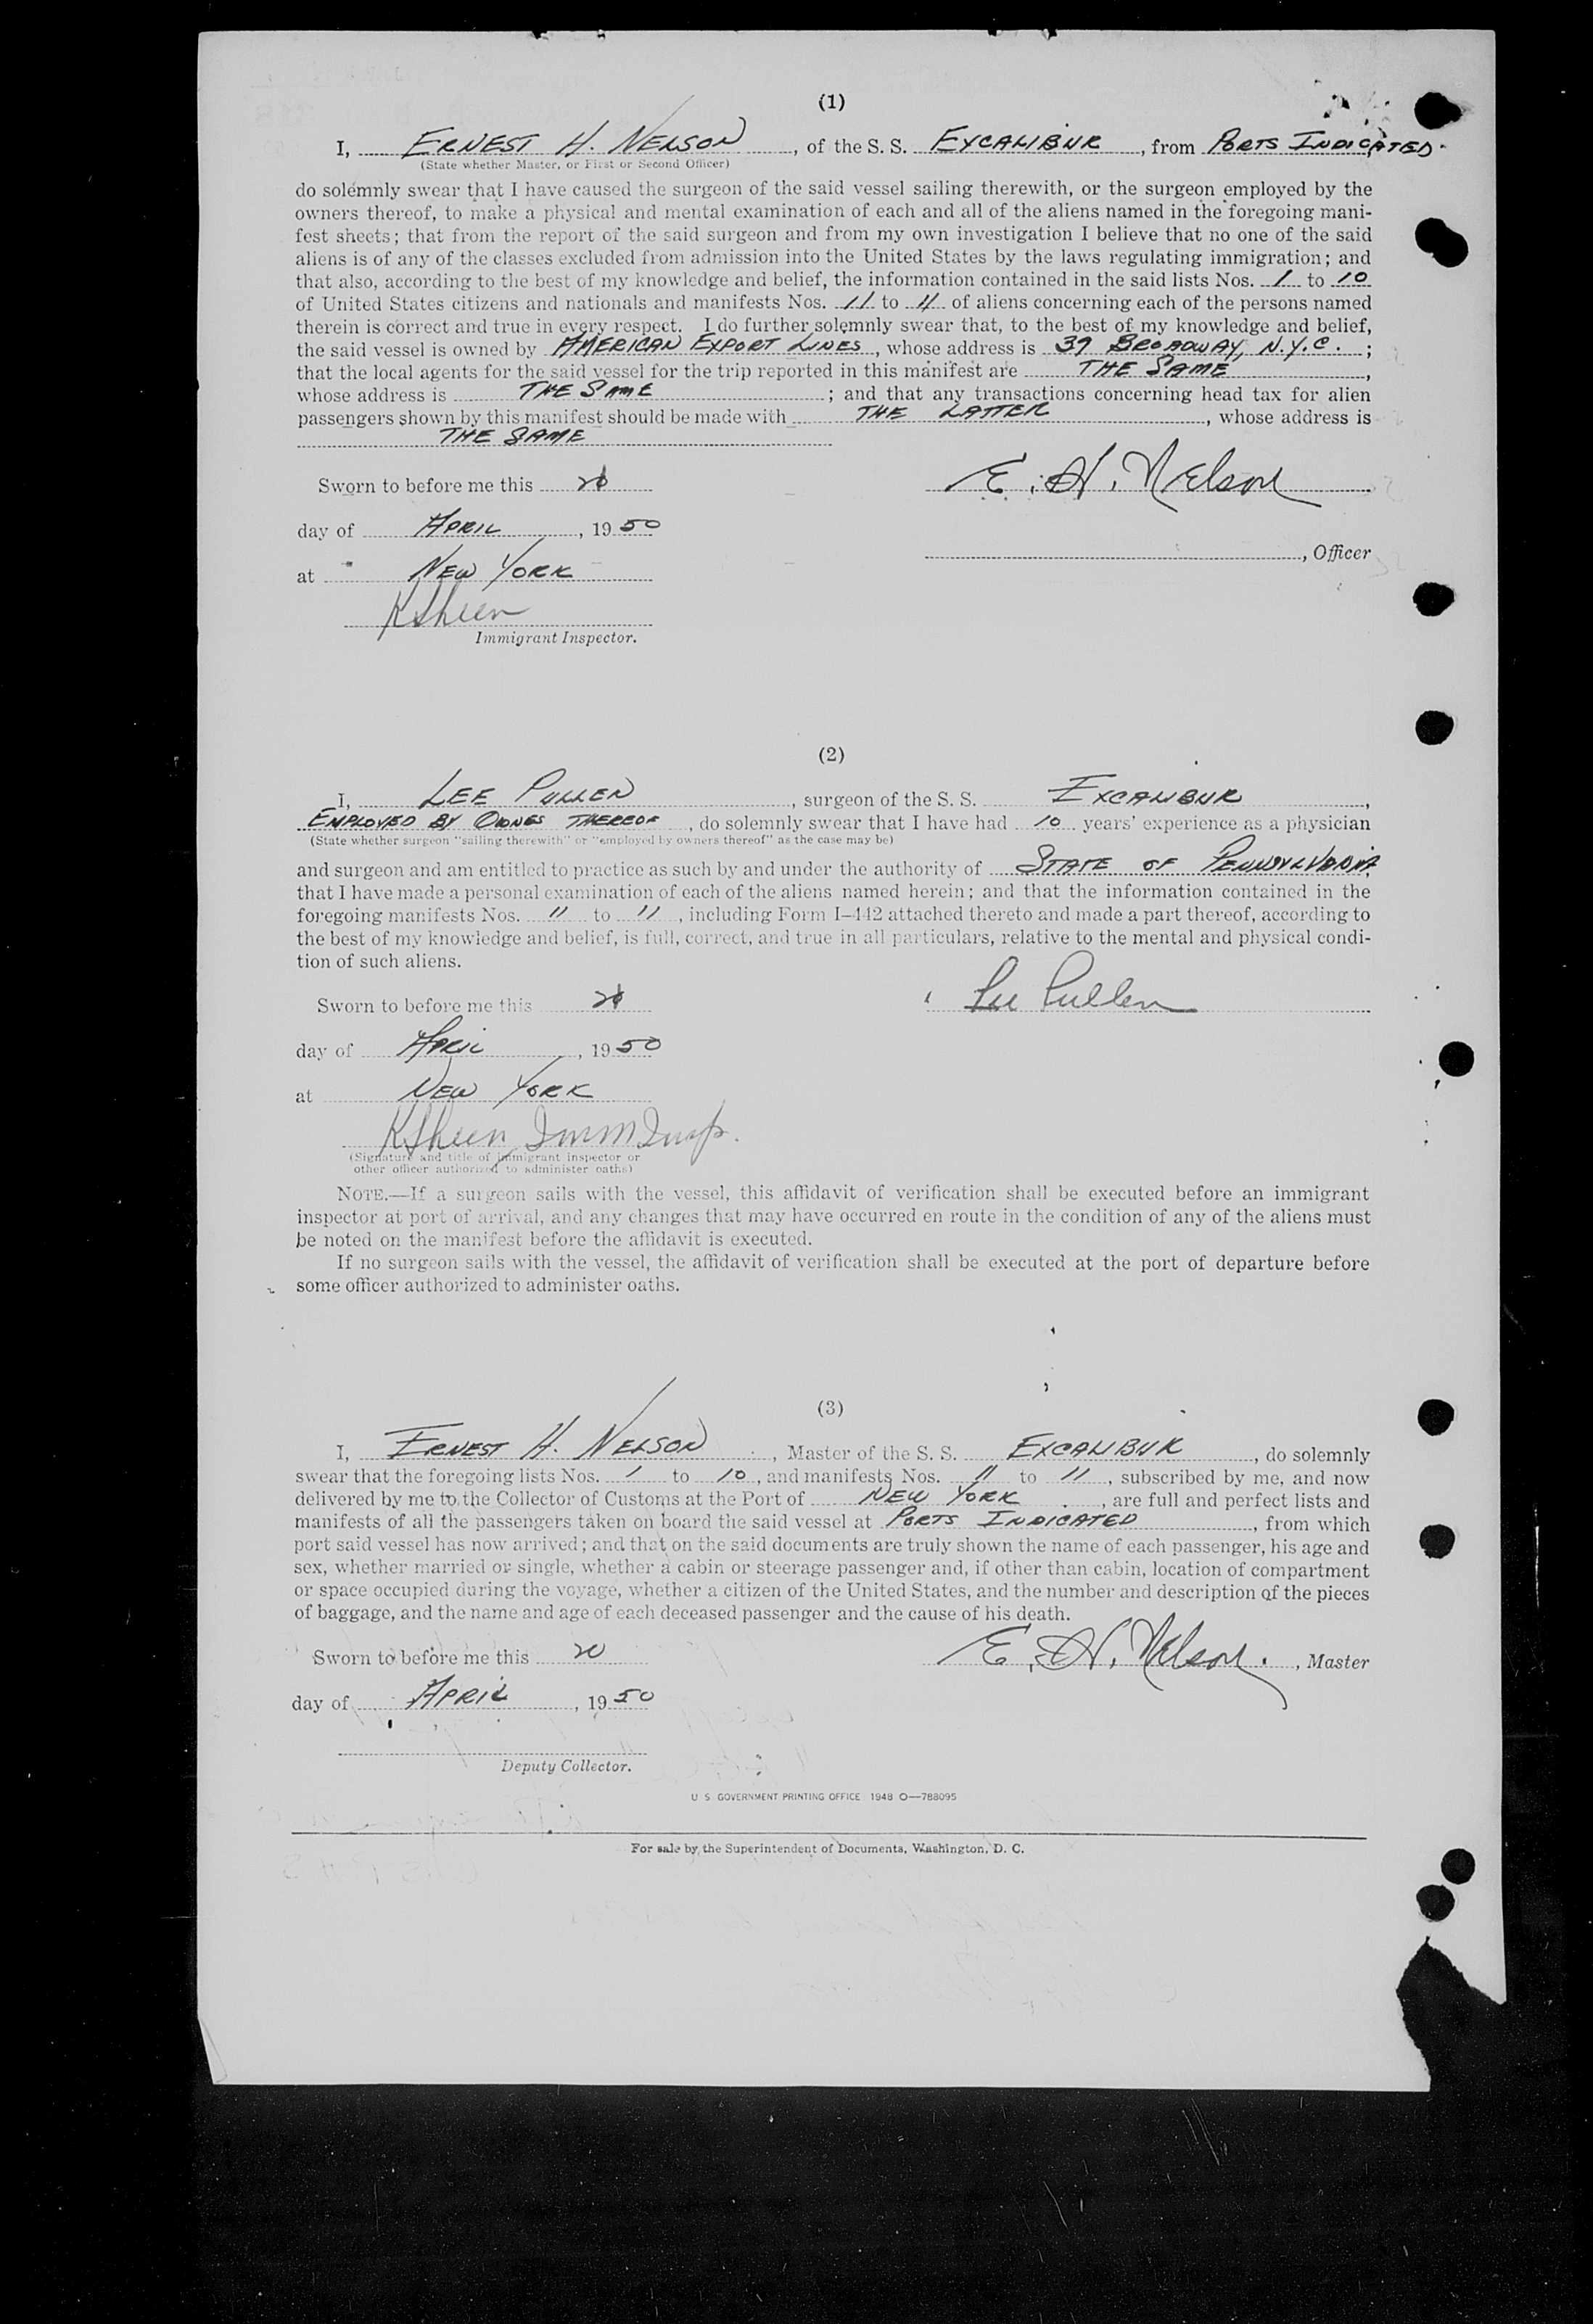 (1)
I, ERNEST H. NELSON, of the S. S. EXCALIBUR, from PORTS INDICATED.
(State whether Master, or First or Second Officer)
do solemnly swear that I have caused the surgeon of the said vessel sailing therewith, or the surgeon employed by the
owners thereof, to make a physical and mental examination of each and all of the aliens named in the foregoing mani-
fest sheets; that from the report of the said surgeon and from my own investigation I believe that no one of the said
aliens is of any of the classes excluded from admission into the United States by the laws regulating immigration; and
that also, according to the best of my knowledge and belief, the information contained in the said lists Nos. 1 to 10
of United States citizens and nationals and manifests Nos. 11 to 11 of aliens concerning each of the persons named
therein is correct and true in every respect. I do further solemnly swear that, to the best of my knowledge and belief,
the said vessel is owned by AMERICAN EXPORT LINES, whose address is 39 BROADWAY, N.Y.C. ;
that the local agents for the said vessel for the trip reported in this manifest are THE SAME,
whose address is THE SAME ; and that any transactions concerning head tax for alien
passengers shown by this manifest should be made with THE LATTER, whose address is
THE SAME
Sworn to before me this 20
E. H. Nelson
day of APRIL, 1950
, Officer
at NEW YORK
KSheen
Immigrant Inspector.
(2)
I, LEE PULLEN, surgeon of the S. S. EXCALIBUR,
EMPLOYED BY OWNES THEREOF, do solemnly swear that I have had 10 years' experience as a physician
(State whether surgeon "sailing therewith" or "employed by owners thereof" as the case may be)
and surgeon and am entitled to practice as such by and under the authority of STATE OF PENNSYLVANIA
that I have made a personal examination of each of the aliens named herein; and that the information contained in the
foregoing manifests Nos. 11 to 11, including Form I-442 attached thereto and made a part thereof, according to
the best of my knowledge and belief, is full, correct, and true in all particulars, relative to the mental and physical condi-
tion of such aliens.
Sworn to before me this 20
Lee Pullen
day of APRIL, 1950
at NEW YORK
KSheen Imm Insp.
(Signature and title of immigrant inspector or
other officer authorized to administer oaths)
NOTE.—If a surgeon sails with the vessel, this affidavit of verification shall be executed before an immigrant
inspector at port of arrival, and any changes that may have occurred en route in the condition of any of the aliens must
be noted on the manifest before the affidavit is executed.
If no surgeon sails with the vessel, the affidavit of verification shall be executed at the port of departure before
some officer authorized to administer oaths.
(3)
I, ERNEST H. NELSON, Master of the S. S. EXCALIBUR, do solemnly
swear that the foregoing lists Nos. 1 to 10, and manifests Nos. 11 to 11, subscribed by me, and now
delivered by me to the Collector of Customs at the Port of NEW YORK, are full and perfect lists and
manifests of all the passengers taken on board the said vessel at PORTS INDICATED, from which
port said vessel has now arrived; and that on the said documents are truly shown the name of each passenger, his age and
sex, whether married or single, whether a cabin or steerage passenger and, if other than cabin, location of compartment
or space occupied during the voyage, whether a citizen of the United States, and the number and description of the pieces
of baggage, and the name and age of each deceased passenger and the cause of his death.
Sworn to before me this 20
E. H. Nelson. , Master
day of APRIL, 1950
Deputy Collector.
U S GOVERNMENT PRINTING OFFICE 1948 O—788095
For sale by the Superintendent of Documents, Washington, D. C.